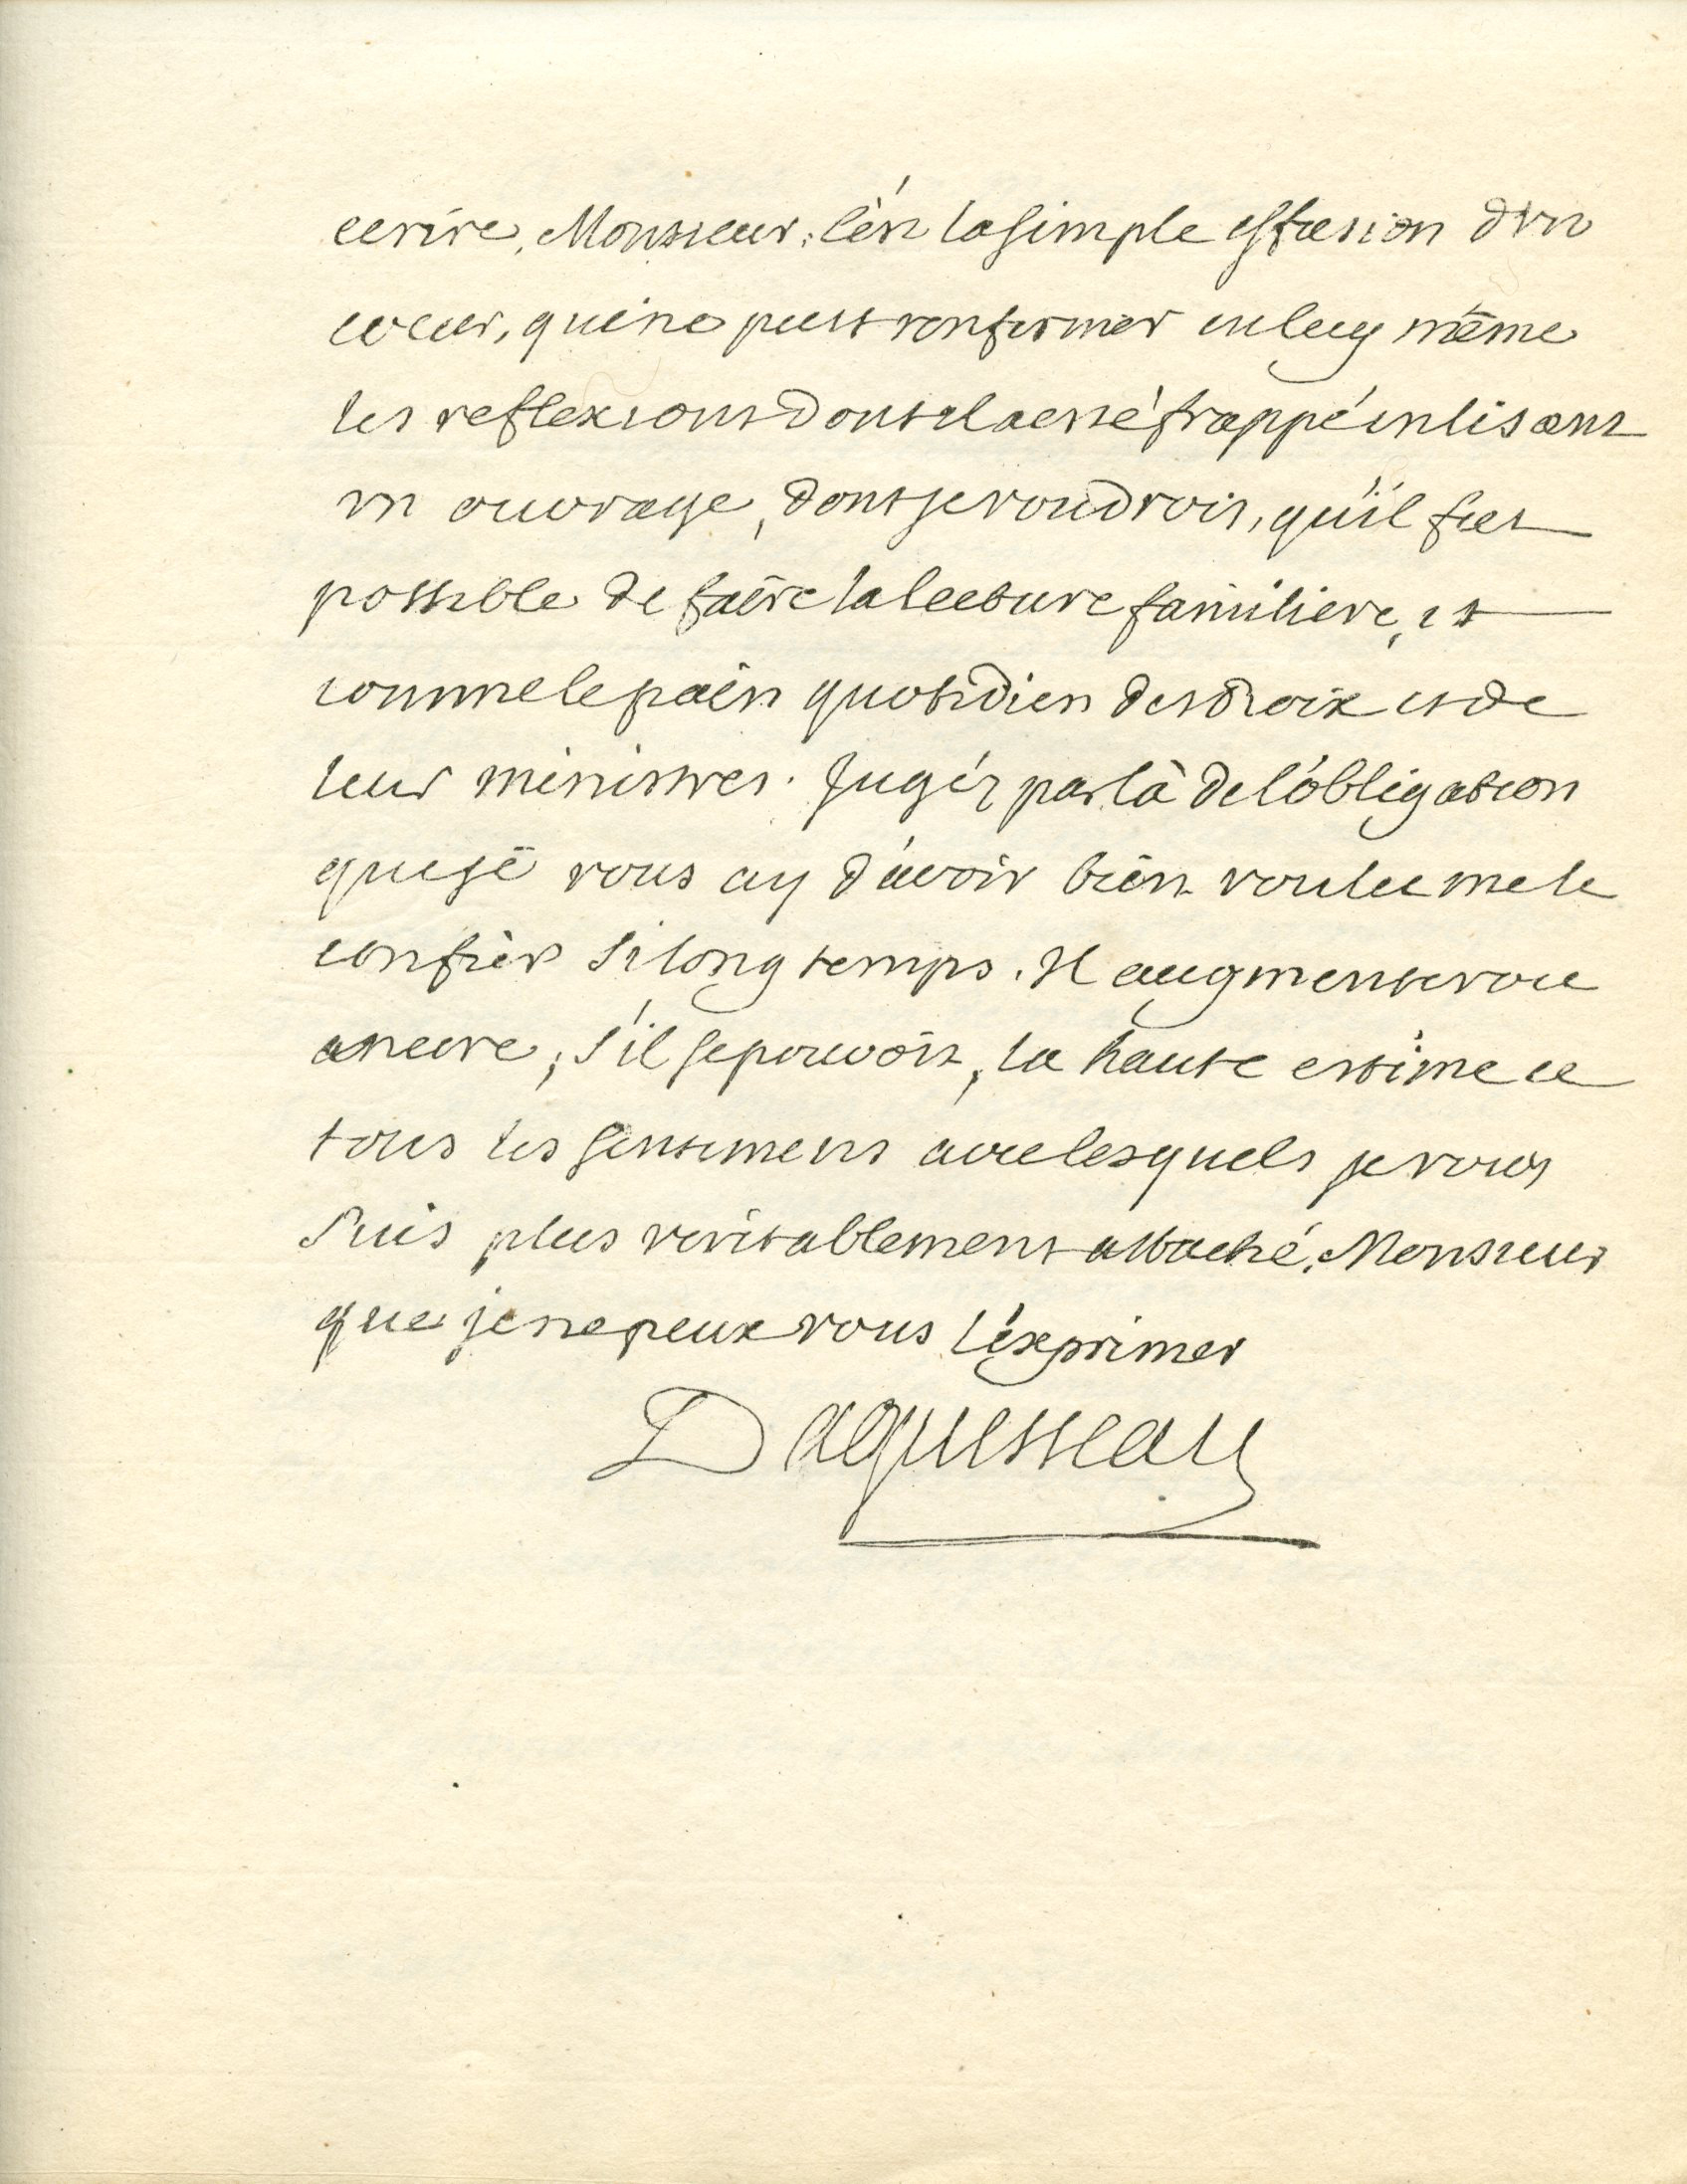 ecrire, Monsieur; c'est la simple effusion d'vn
cœur, qui ne peut renfermer en luy même
les reflexions dont il a esté frappé en lisant
vn ouvrage, dont je voudrois, qu'il fut
possible de faire la lecture familiere, et
comme le pain quotidien des Roix et de
leur ministres. Jugéz par là de l'obligation
que je vous ay d'avoir bien voulu me le
confier si long temps. Il augmenteroit
ancore, s'il se pouvoit, la haute estime et
tous les sentimens avec lesquels je vous
suis plus veritablement attaché, Monsieur
que je ne peux vous l'exprimer
Daguesseau